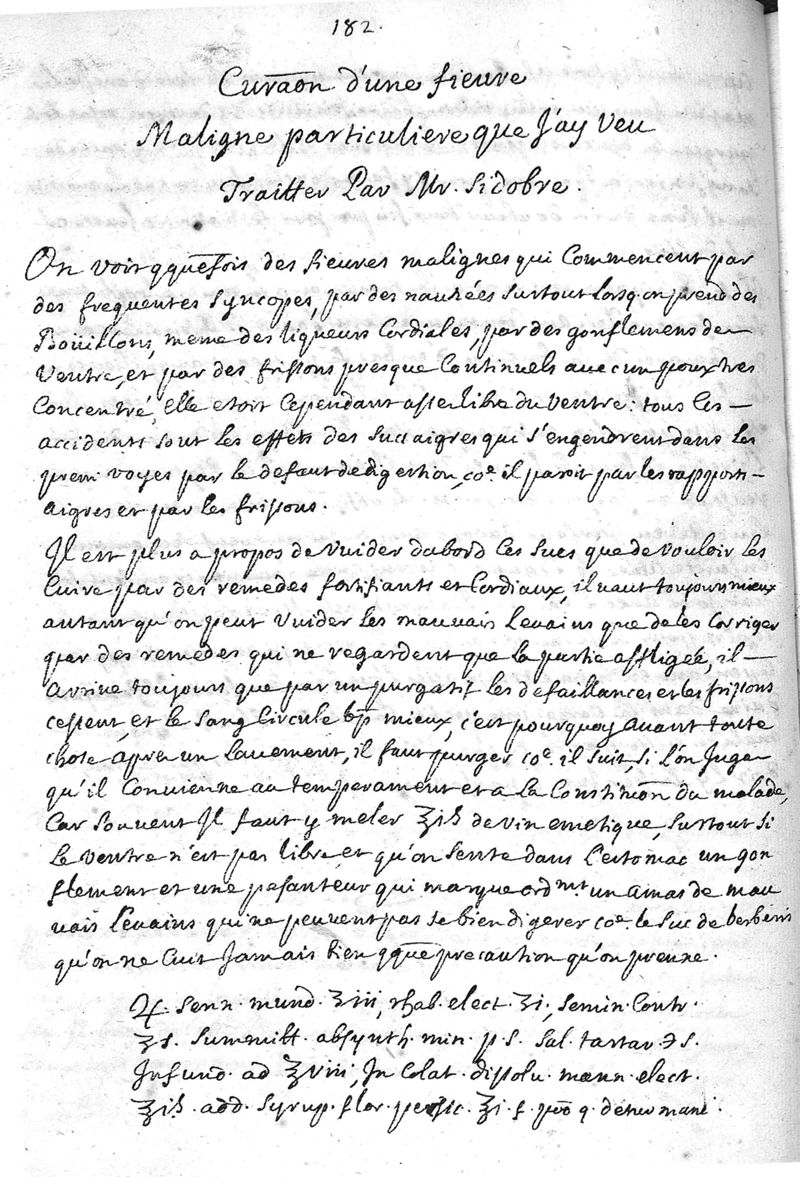 182.
Curaõn d'une fieure
Maligne particuliere que J'ay veu
Traitter Par Mr. Sidobre.
On voit qquefois des fieures malignes qui Commencent par
des frequentes Syncopes, par des nausées surtout Lorsq. on prend des
Boüillons, meme des liqueurs Cordiales, par des gonflemens de
Ventre, et par des frissons presque Continuels auec un poux tres
Concentré, Elle etoit Cependant asses libre du Ventre: tous Ces
accidents sont les effets des sucs aigres qui s'engendrent dans les
prem. voyes par le defaut de digestion, coe. il paroit par les rapports
aigres et par les frissons.
Il est plus a propos de vuider dabord Ces sucs que de vouloir les
Cuire par des remedes fortifiants et Cordiaux, il vaut toujours mieux
autant qu'on peut vuider les mauvais Levains que de les Corriger
par des remedes qui ne regardent que la partie affligée, il
arrive toujours que par un purgatif les defaillances et les frissons
cessent, et le sang Circule bp mieux, c'est pourquoy avant toute
chose apres un Lauement, il faut purger coe. il suit, si l'on Juge
qu'il Convienne au temperament et a la Constituõn du malade,
Car souvent Il faut y meler ʒiß de vin emetique, surtout si
le ventre n'est pas libre et qu'on sente dans l'estomac un gon
flement et une pesanteur qui marque ordmt. un amas de mau
vais levains qui ne peuvent pas se bien digerer coe. le suc de berberis
qu'on ne Cuit Jamais bien qque precaution qu'on prenne.
♃. senn. mund. ʒiii, rhab. elect. ʒi, semin. Contr.
ʒs. summitt. absynth. min. p. s. sal. tartar. ℈s.
Infund. ad ℥viii, In Colat. dissolu. mann. elect.
℥iß. add. syrup. flor. persic. ℥i. f. poõ q. detur mane.